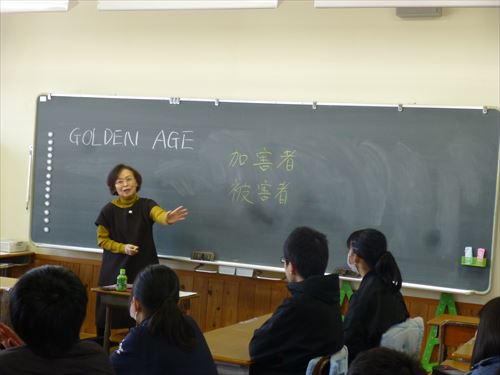 GOLDEN AGE
加害者
被害者